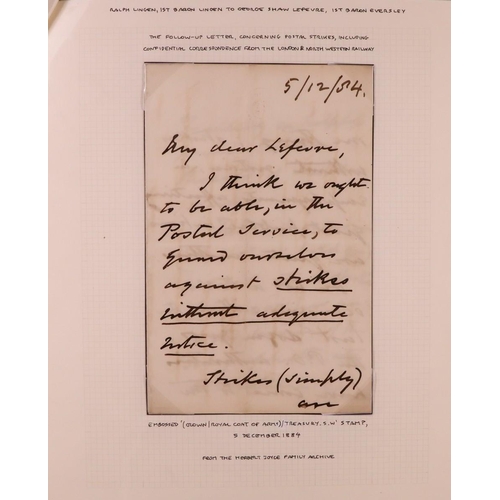 RALPH LINGEN, 1ST BARON LINGEN TO GEORGE SHAW LEFEVRE, 1ST BARON EVERSLEY
THE FOLLOW-UP LETTER, CONCERNING POSTAL STRIKES, INCLUDING
CONFIDENTIAL CORRESPONDENCE FROM THE LONDON & NORTH WESTERN RAILWAY
5/12/84.
My dear Lefevre,
I think we ought
to be able, in the
Postal Service, to
guard ourselves
against strikes
without adequate
notice.
Strikes (simply)
are
EMBOSSED '(CROWN/ROYAL COAT OF ARMS)/TREASURY. S.W' STAMP,
5 DECEMBER 1884
FROM THE HERBERT JOYCE FAMILY ARCHIVE